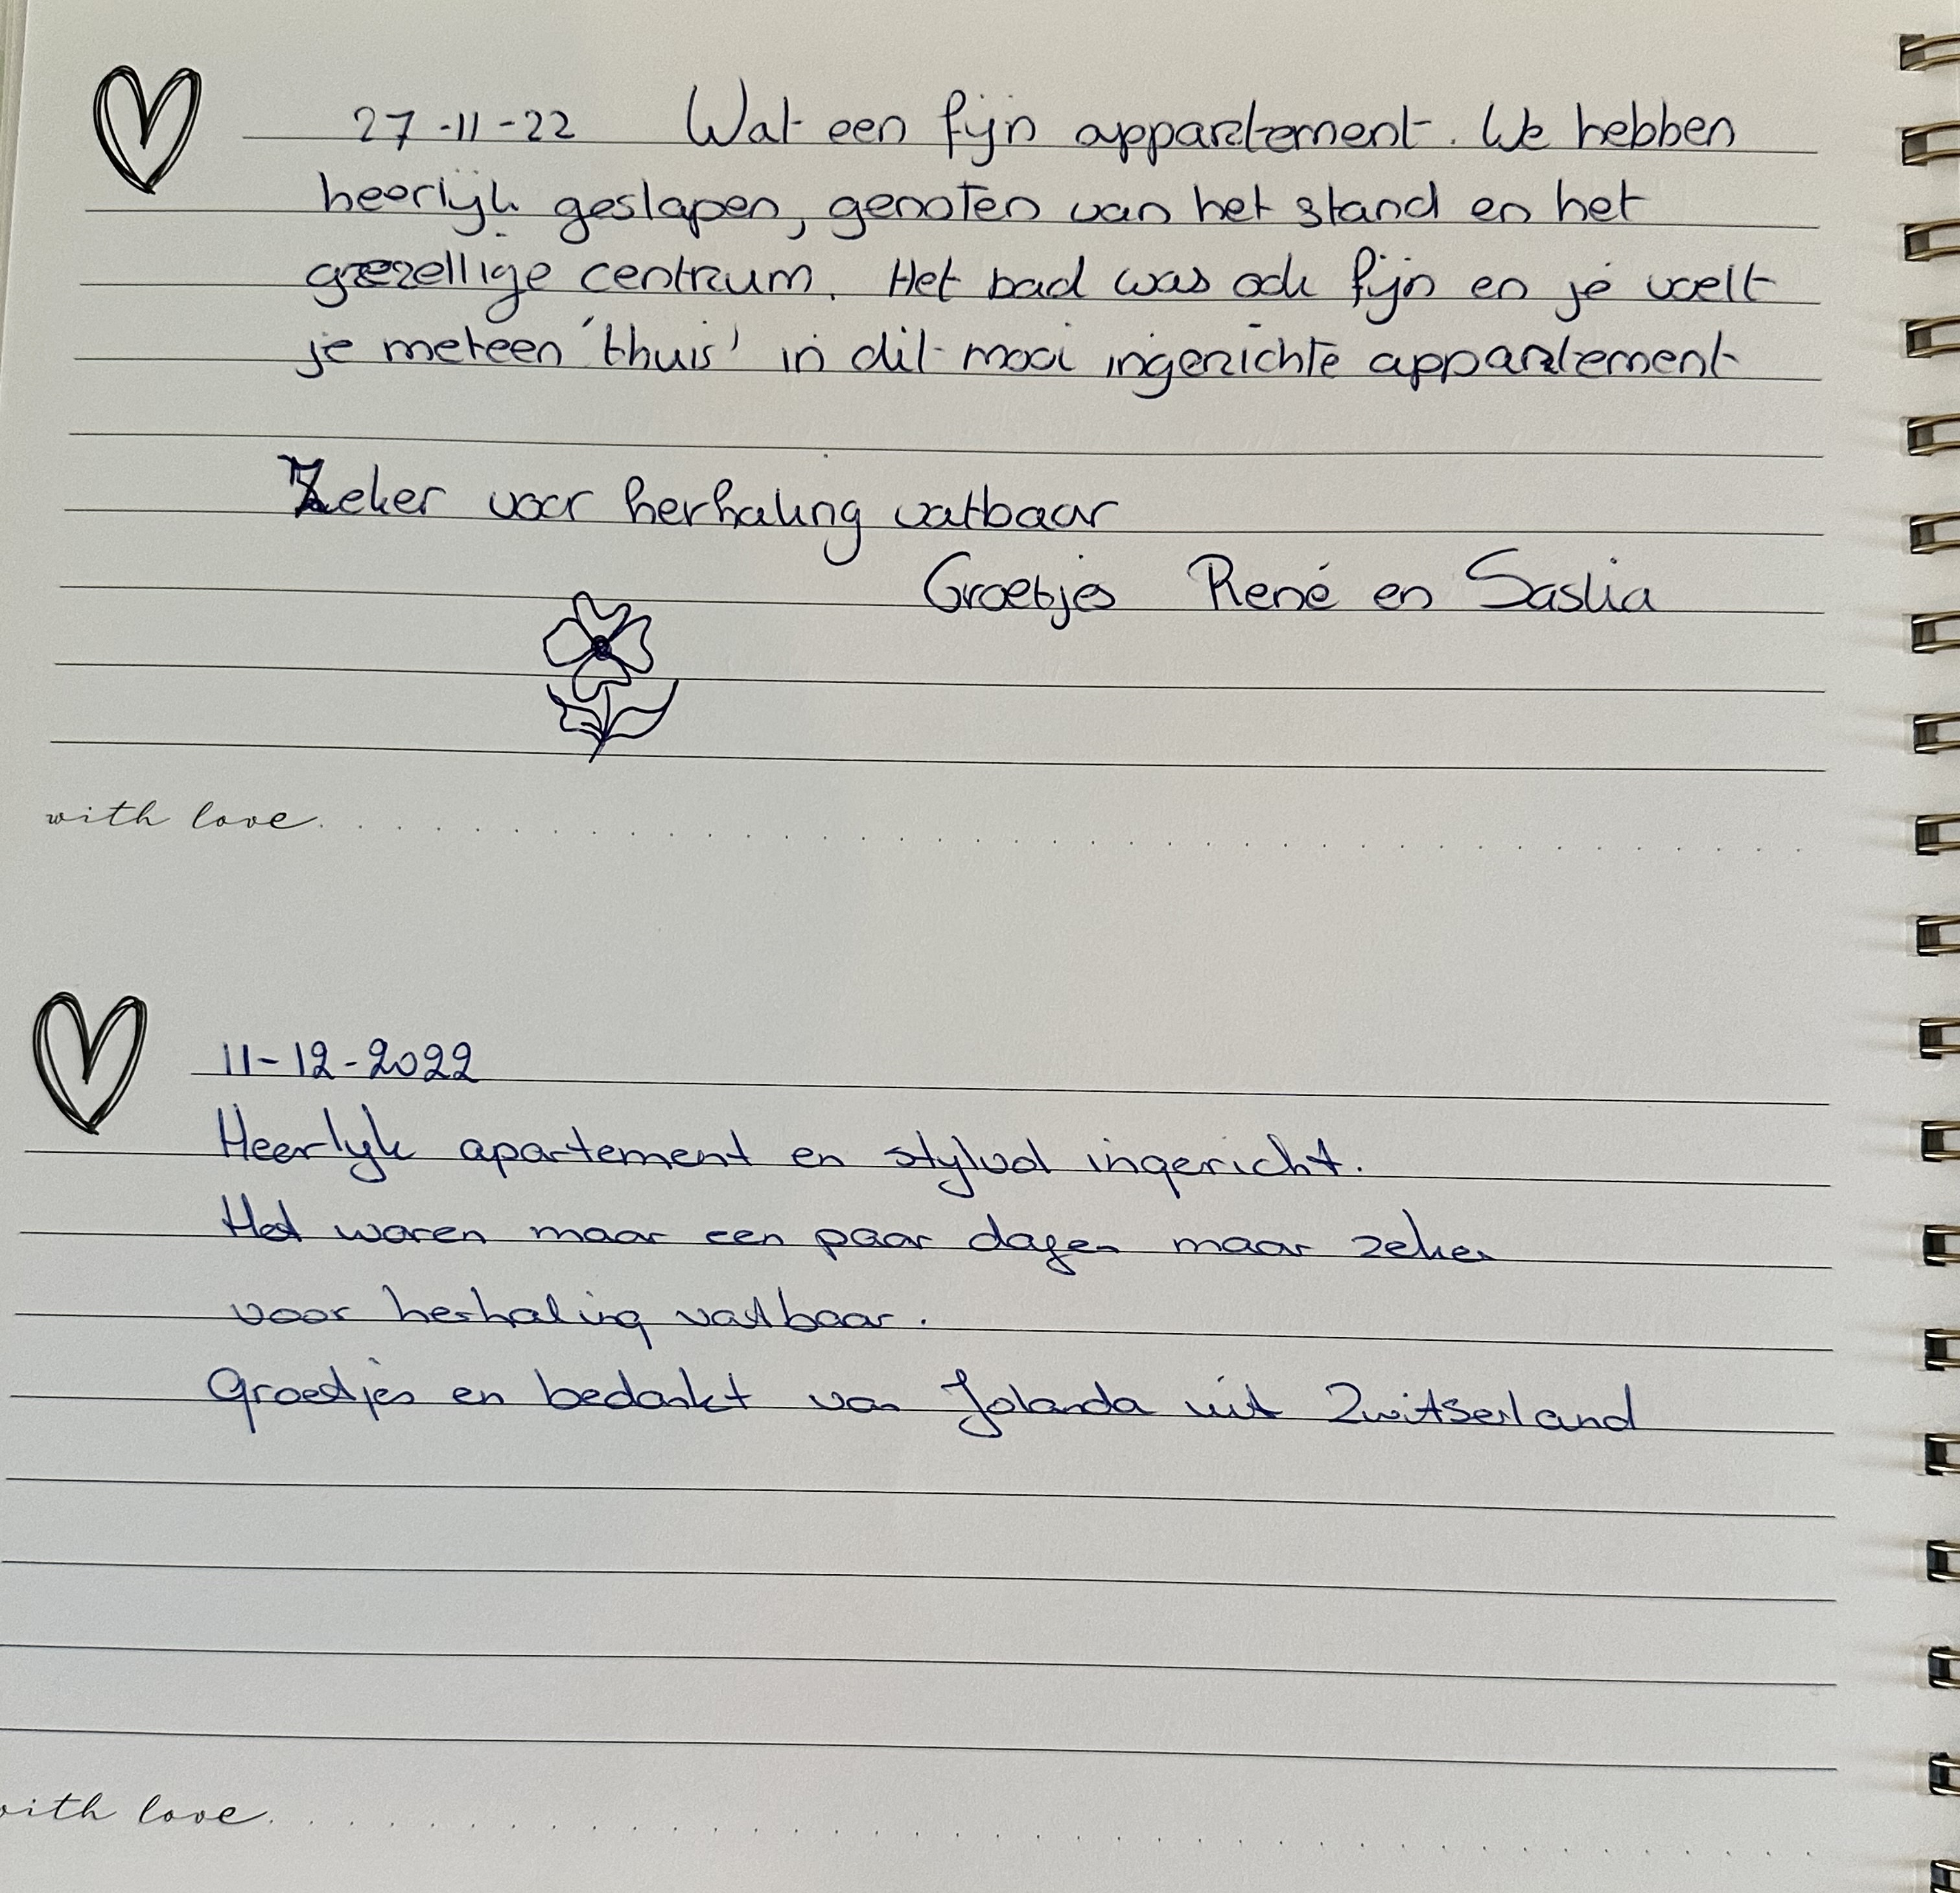 27-11-22 Wat een fijn appartement. We hebben
heerlijk geslapen, genoten van het strand en het
gezellige centrum. Het bad was ook fijn en je voelt
je meteen 'thuis' in dit mooi ingerichte appartement
Zeker voor herhaling vatbaar
Groetjes René en Saskia
with love
11-12-2022
Heerlijk apartement en stylvol ingericht.
Het waren maar een paar dagen maar zeker
voor herhaling vatbaar.
Groetjes en bedankt van Jolanda uit Zwitserland
with love